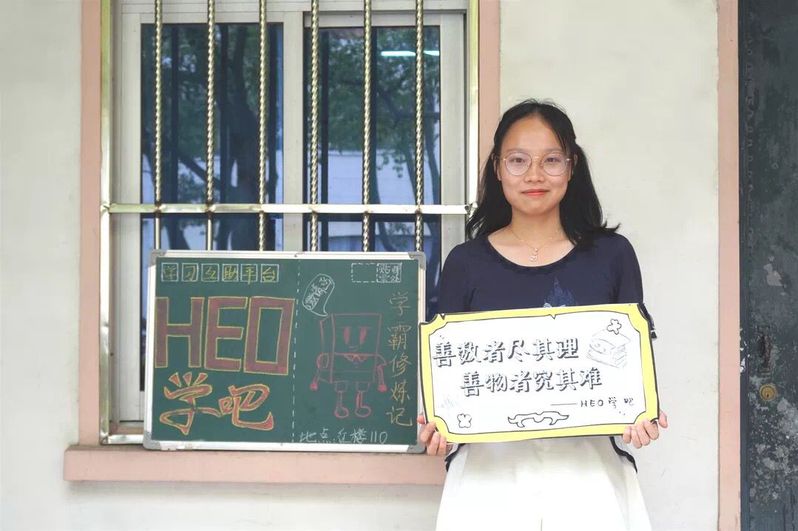 学习互助平台
HEO
学吧
学霸修炼记
110
善数者尽其理
善物者究其难
——HEO学吧